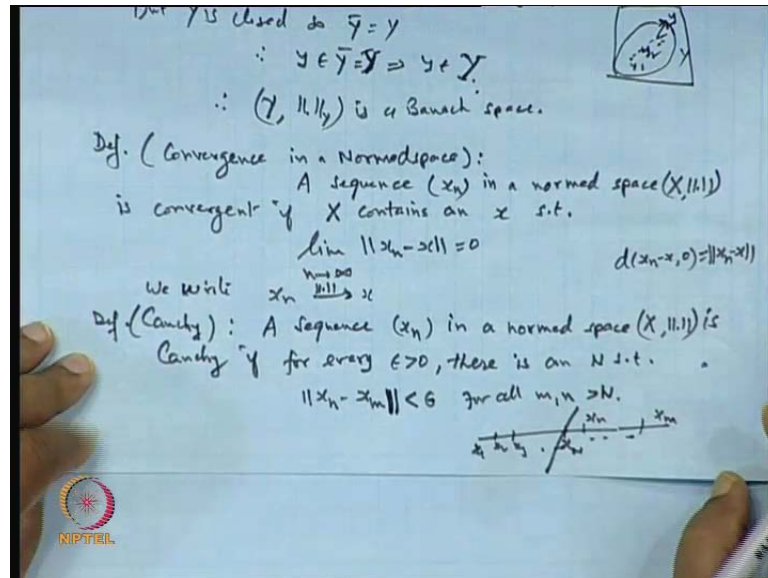 But Y is closed so Ȳ = Y
∴ y ∈ Ȳ = Y ⇒ y ∈ Y.
∴ (Y, ||.||_Y) is a Banach space.
Y
Def. (Convergence in a Normed space):
A sequence (xn) in a normed space (X, ||.||)
is convergent if X contains an x s.t.
lim ||xn - x|| = 0
n→∞
d(xn-x, 0) = ||xn-x||
We write xn —||.||→ x
Def (Cauchy): A sequence (xn) in a normed space (X, ||.||) is
Cauchy if for every ε>0, there is an N s.t.
||xn - xm|| < ε for all m, n > N.
xn xm
x1 x2 x3 . xN
NPTEL